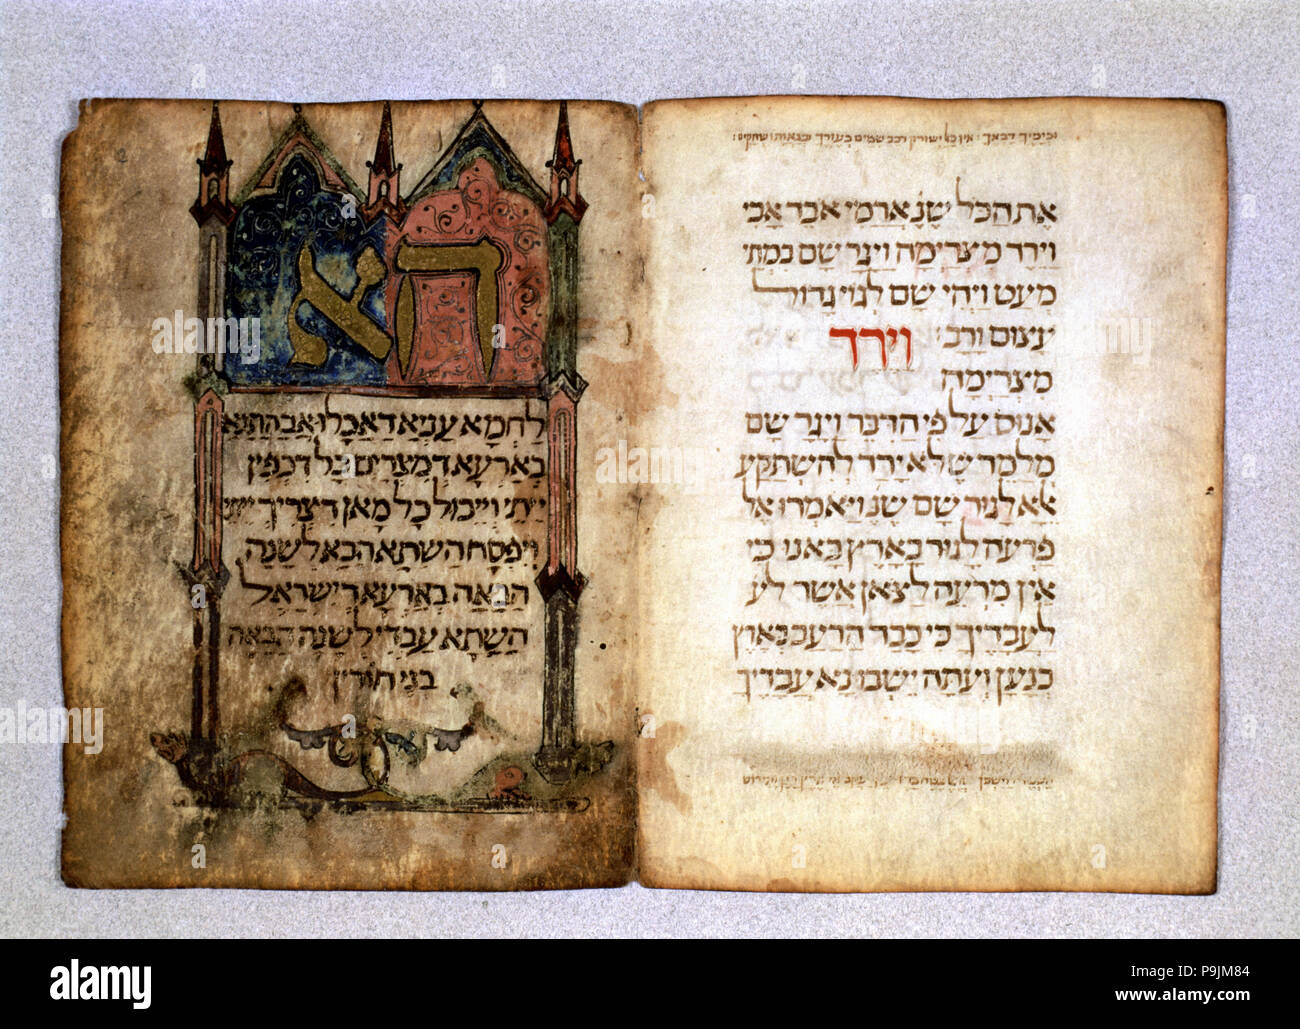 הא
לַחְמָא עַנְיָא דַאֲכָלוּ אֲבָהָתַנָא
בְאַרְעָא דְמִצְרַיִם כָל דִכְפִין
יֵיתֵי וְיֵיכוּל כָל מָאן דִצְרִיךְ יֵיתֵי
וְיִפְסַח הַשַתָא הָכָא לְשָנָה
הַבָאָה בְאַרְעָא דְיִשְרָאֵל
הַשַתָא עַבְדֵי לְשָנָה הַבָאָה
בְנֵי חוֹרִין
רכב שמים בעזרך ובגאותו שחקים
אֶת הַכֹל שֶנֶ אֲרַמִי אֹבֵד אָבִי
וַיֵרֶד מִצְרַיְמָה וַיָגָר שָם בִמְתֵי
מְעָט וַיְהִי שָם לְגוֹי גָדוֹל
עָצוּם וָרָב וַיֵרֶד
מִצְרַיְמָה
אָנוּס עַל פִי הַדִבֵר וַיָגָר שָם
מְלַמֵד שֶלֹא יָרַד לְהִשְתַקֵעַ
אֶלָא לָגוּר שָם שֶנֶ וַיֹאמְרוּ אֶל
פַרְעֹה לָגוּר בָאָרֶץ בָאנוּ כִי
אֵין מִרְעֶה לַצֹאן אֲשֶר לַעֲ
לַעֲבָדֶיךָ כִי כָבֵד הָרָעָב בְאֶרֶץ
כְנָעַן וְעַתָה יֵשְבוּ נָא עֲבָדֶיךָ
alamy
Image ID: P9JM84
www.alamy.com